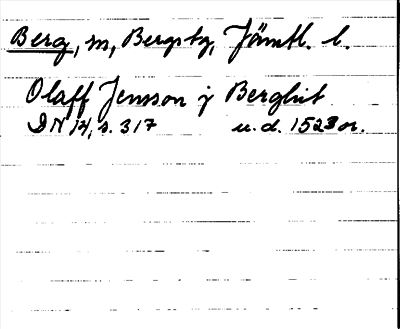 Berg, m, Bergs tg, Jämtl. l.
Olaff Jensson j Berghit
DN 14, s. 317 u. d. 1523 or.